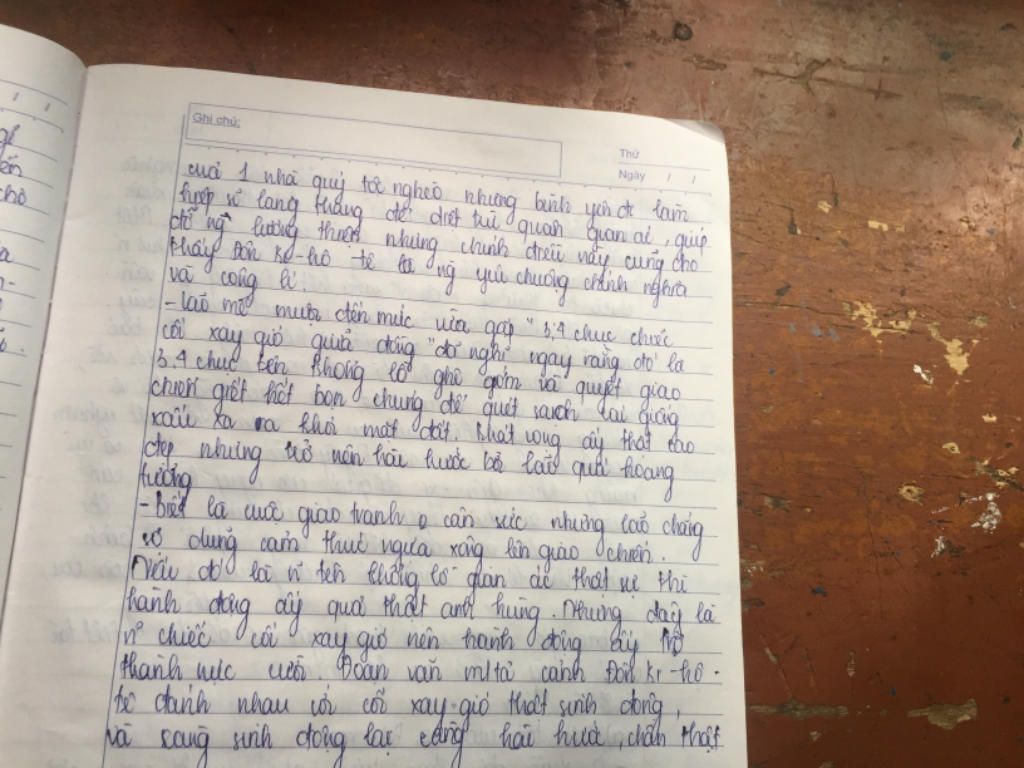 gh
ến
chò
Ghi chú:
Thứ
Ngày / /
cuả 1 nhà quý tộc nghèo nhưng bình yên để làm
hiệp sĩ lang thang để diệt trừ quân gian ác, giúp
đỡ ng` lương thiện nhưng chính điều này cũng cho
thấy Đôn Ki-hô-tê là ng yêu chuộng chính nghĩa
và công lí.
- Lão mê muội đến mức vừa gặp "3,4 chục chiếc
cối xay gió giữa đồng" đã nghĩ ngay rằng đó là
3.4 chục tên khổng lồ ghê gớm và quyết giao
chiến giết hết bọn chúng để quét sạch lại giống
xấu xa ra khỏi mặt đất. Khát vọng ấy thật cao
đẹp nhưng trở nên hài hước bởi lão quá hoang
tưởng
- Biết là cuộc giao tranh o cân sức nhưng lão chẳng
sợ dũng cảm thúc ngựa xông lên giao chiến.
Nếu đó là n~ tên khổng lồ gian ác thật sự thì
hành động ấy quả thật anh hùng. Nhưng đây là
n~ chiếc cối xay gió nên hành động ấy trở
thành nực cười. Đoạn văn m/tả cảnh Đôn Ki-hô-
tê đánh nhau với cối xay gió thật sinh động,
và càng sinh động lại càng hài hước, chân thật